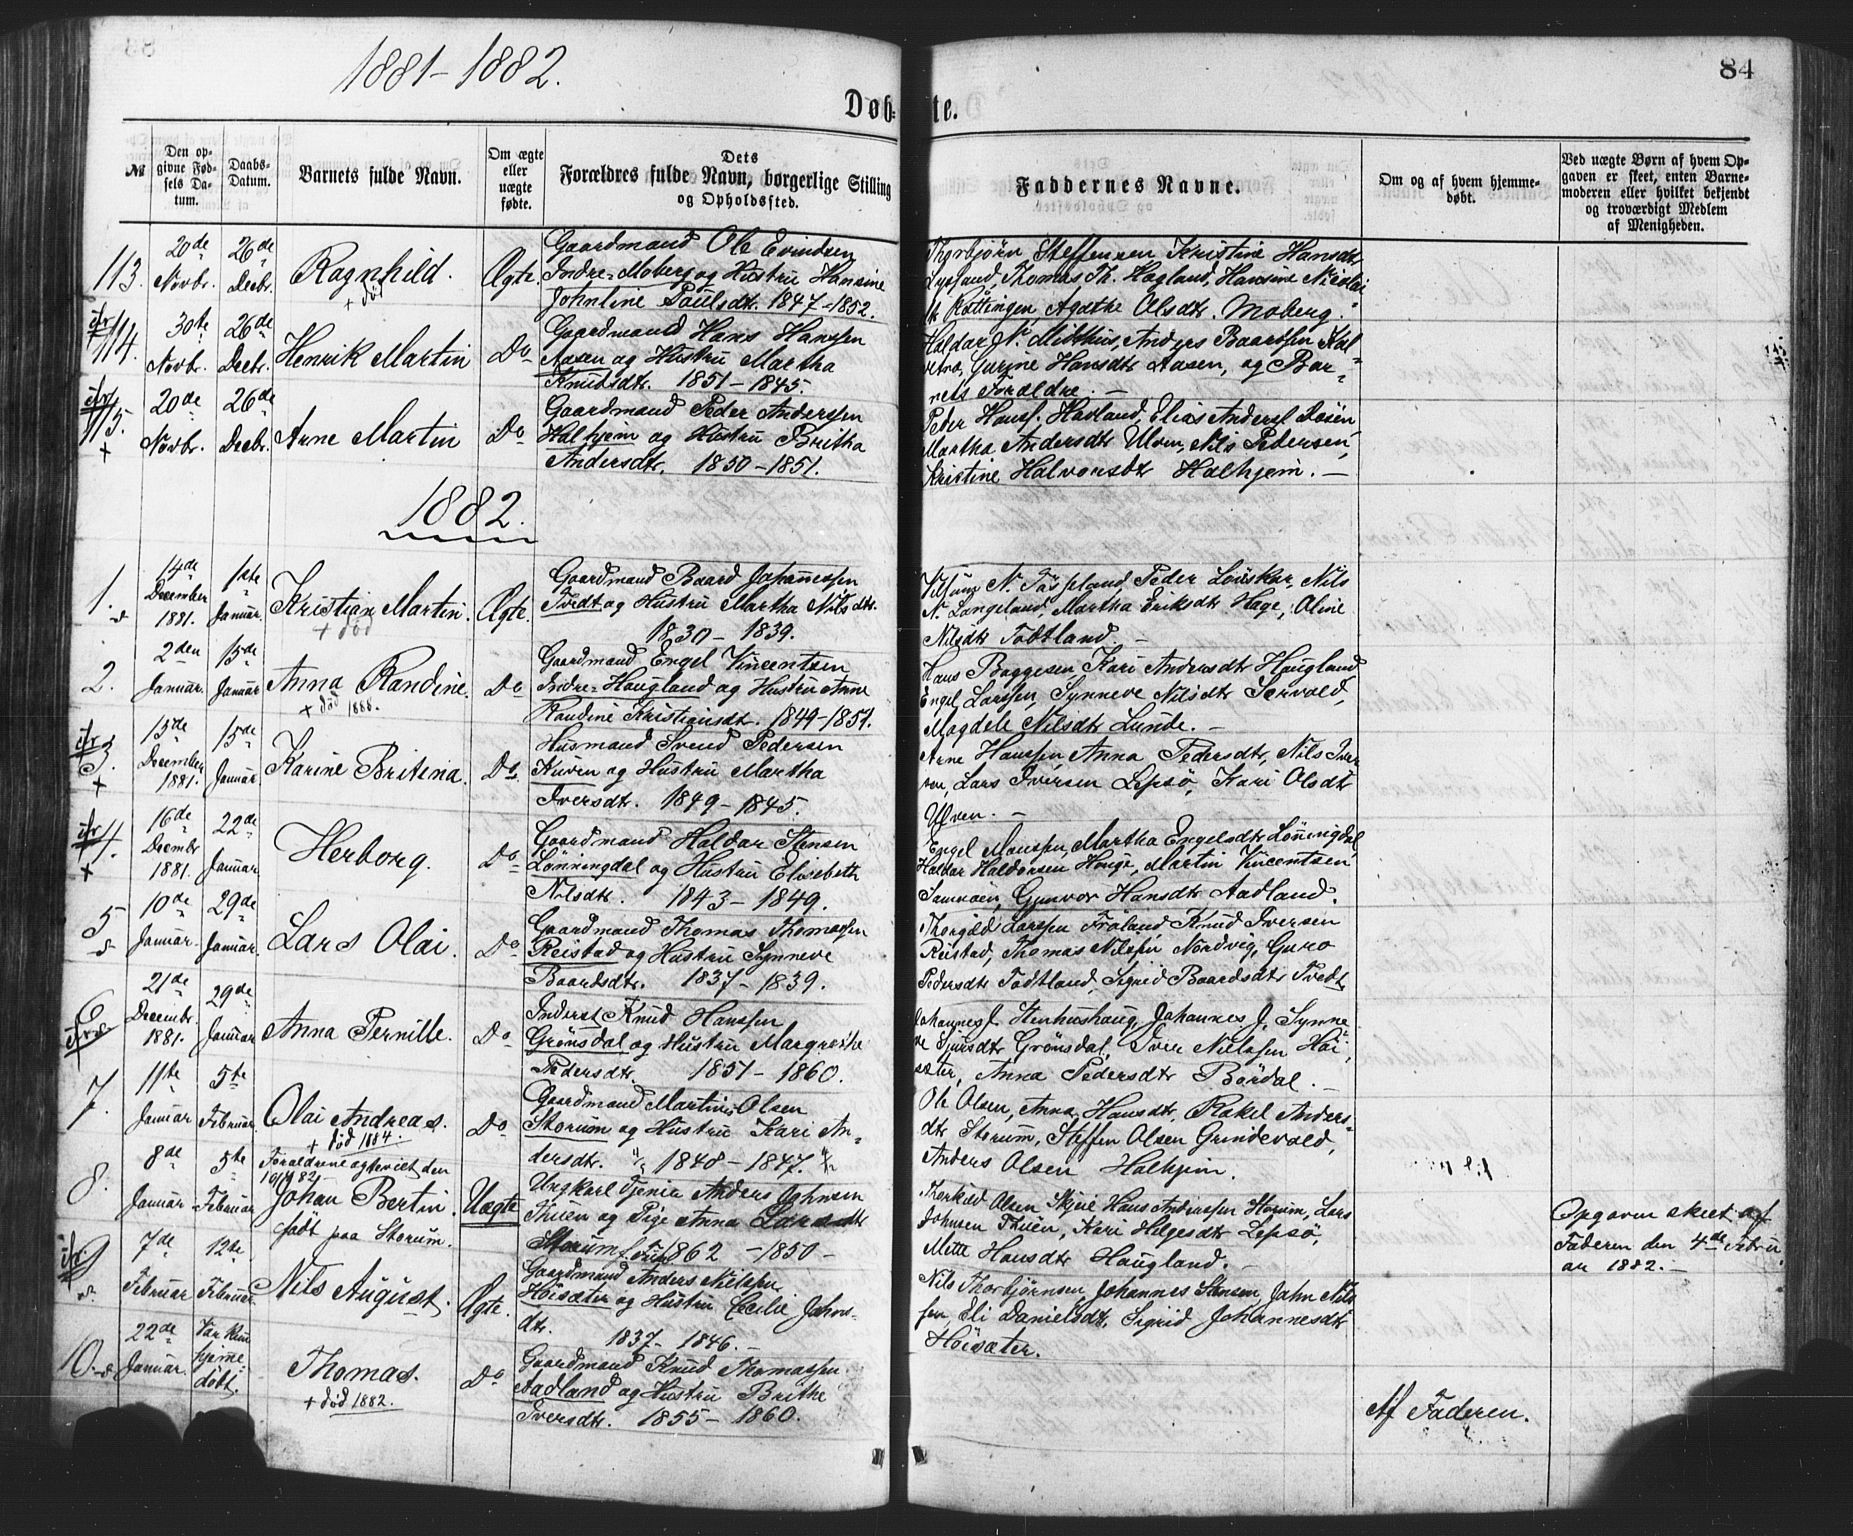 1881-1882.
84
Døb-te.
№
Den opgivne Fødsels Datum.
Daabs-Datum.
Barnets fulde Navn.
Om ægte eller uægte fødte.
Dets Forældres fulde Navn, borgerlige Stilling og Opholdssted.
Faddernes Navne.
Om og af hvem hjemmedøbt.
Ved uægte Børn af hvem Opgaven er skeet, enten Barnemoderen eller hvilket bekjendt og troværdigt Medlem af Menigheden.
113. 20de Novbr. 26de Decbr. Ragnhild. + død Ægte.
Gaardmand Ole Evindsen
Indre-Moberg og Hustru Hansine
Johnline Paulsdt. 1847-1852.
Thorbjørn Steffensen Kristine Hansdt
Lyssand, Thomas Th. Hagland, Hansine Nicolai
Røttingen, Agathe Olsdt. Moberg.
114. 30te Novbr. 26de Decbr. Henrik Martin Do
Gaardmand Hans Hanssen
Aasen og Hustru Martha
Knudsdtr. 1851-1845
Haldor N. Midthus, Anders Baardsen Kol-
Gurine Hansdt Aasen, og Bar-
nets Forældre. -
115. + 20de Novbr. 26de Decbr. Arne Martin Do
Gaardmand Peder Anderssen
Halhjem og Hustru Britha
Andersdtr. 1850-1851.
Peder Hans. Havland, Elias Anders. Døsen
Martha Andersdtr Ulven, Nils Pedersen,
Kristine Halvorsdtr Halhjem. -
1882.
1. 14de December 1881. 1ste Januar. Kristian Martin. + død Ægte.
Gaardmand Baard Johannessen
Tvedt og Hustru Martha Nilsdtr.
1830 - 1839.
N. Peder Lønskar, Nils
N. Langeland, Martha Eriksdtr Hage, Oline
Nilsdtr Todtland. -
2. 2den Januar. 15de Januar. Anna Randine. + død 1888. Do
Gaardmand Engel Vincentsen
Indre-Haugland og Hustru Anne
Randine Kristiansdt. 1849-1851.
Hans Baggesen, Kari Andersdtr Haugland
Engel Larssen, Synneve Nilsdtr
Magdele Nilsdtr Lunde. -
3. + 13de December 1881. 15de Januar. Karine Britena. Do
Husmand Svend Pedersen
Kuven og Hustru Martha
Iversdtr. 1849-1845.
Arne Hanssen Anna Pedersdtr, Nils Iver
sen, Lars Iversen Lepsø, Kari Olsdtr
Ulven. -
4. + 16de Decembr 1881. 22de Januar. Herborg. Do
Gaardmand Haldor Stensen
Lønningdal og Hustru Elisebeth
Nilsdtr. 1843 - 1849.
Engel Monssen, Martha Engelsdtr Lønningdal
Haldor Haldorsen Hauge, Martin Vincentsen
Samnøen, Gunvor Hansdtr Aadland.
5 10de Januar. 29de Januar. Lars Olai. Do
Gaardmand Thomas Thomassen
Reistad og Hustru Synneve
Baardsdtr. 1837 - 1839.
Larssen Frøland Knud Iversen
Reistad, Thomas Nilssen Nordvig, Guro
Pedersdtr Todtland, Sigrid Baardsdtr Tvedt
6 21de Decembr. 1881. 29de Januar. Anna Pernille. Do
Inderst Knud Hanssen
Grønsdal og Hustru Margrethe
Pedersdtr. 1851 - 1860.
Johannes J. Stenhushaug, Johannes J, Synne
ve Sjursdtr Grønsdal, Iver Nielssen Høi,
sæter, Anna Pedersdtr Børdal. -
7. 11te Januar 5te Februar. Olai Andreas. + død 1884. Do
Gaardmand Martin Olsen
Storum og Hustru Kari An-
dersdtr. 1848 - 1847.
Ole Olsen, Anna Hansdtr, Rakel Anders-
dtr Storum, Steffen Olsen Grindevold,
Anders Olsen Halhjem.
8. 8de Januar 5te Februar Forældrene ægteviet den 10/9 82 Johan Bertin. født paa Storum. Uægte
Ungkarl Tjener Anders Johnsen
Thuen og Pige Anna Larsdtr
Storum f. 1862 - 1850 -
Thorkild Olsen Skjeie Hans Andreassen Storum, Lars
Johnsen Thuen, Kari Helgesdtr Lepsø,
Mette Hansdtr Haugland. -
Opgaven skeet af
Faderen den 4de Febru
ar 1882. -
9 7de Februar 12te Februar Nils August. Ægte.
Gaardmand Anders Nilssen
Høisæter og Hustru Cecilie Johns-
dtr. 1837 - 1846. -
Nils Thorbjørnsen, Johannes Stensen, John Nils
sen, Eli Danielsdt, Sigrid Johannesdtr
Høisæter.
10. 22de Januar Var kun hjemmedøbt. Thomas. + død 1882. Do
Gaardmand Knud Thomassen
Aadland og Hustru Brithe
Iversdtr. 1855 - 1860.
Af Faderen.